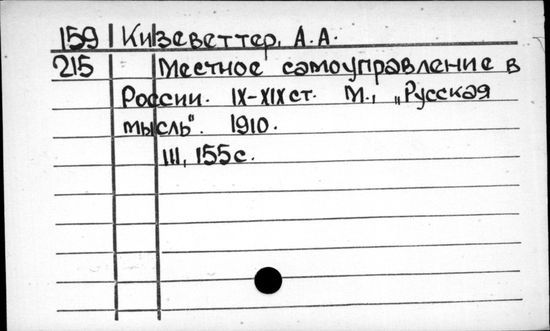 159 Кизеветтер, А.А.
215 Местное самоуправление в
России. IX-XIX ст. М., „Русская
мысль". 1910.
III, 155 с.